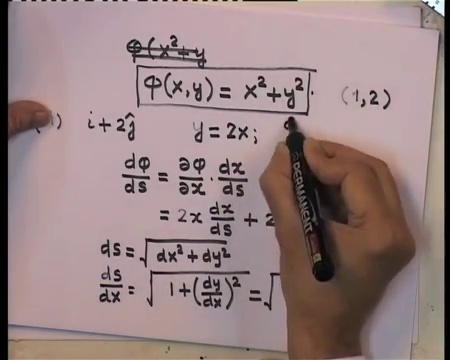 φ(x²+y
φ(x,y) = x²+y².
(1,2)
i+2ĵ y=2x;
dφ/ds = ∂φ/∂x · dx/ds
= 2x dx/ds + 2
ds = √(dx²+dy²)
ds/dx = √(1+(dy/dx)²) = √
PERMANENT